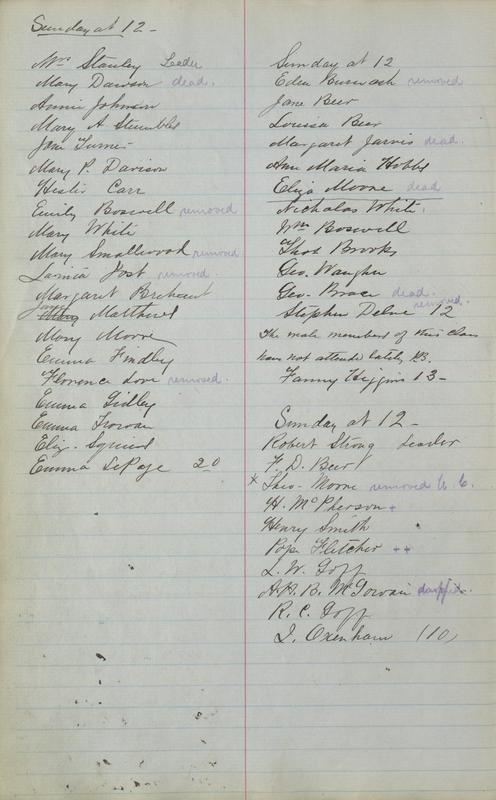 Sunday at 12 -
Mrs Stanley Leader
Mary Dawson dead.
Annie Johnson
Mary A Stumbles
Jane Turner
Mary P. Davison
Hestie Carr
Emily Boswell removed
Mary White
Mary Smallwood removed
Lavinia Post removed.
Margaret Brehaut
Jane Matthews
Mary Moore
Emma Findley
Florence Love removed.
Emma Gidley
Emma Trowan
Eliz. Squires
Emma LePage 20
Sunday at 12
Eden removed
Jane Beer
Louisa Beer
Margaret Jarvis dead.
Ann Maria Hobbs
Eliza Moore dead
Nicholas White.
Wm Boswell
Thos Brooks
Geo. Vaughn
Geo. Brace dead.
Stephen removed. 12
The male members of this Class
have not attended lately
Fanny Higgins 13 -
Sunday at 12 -
Robert Strong Leader
F. D. Beer
x Theo. Moore removed
H. McPherson +
Henry Smith
Pope Fletcher ++
L. W. Goff
A. B. McGowan
R. C. Goff
J. Oxenham (10)